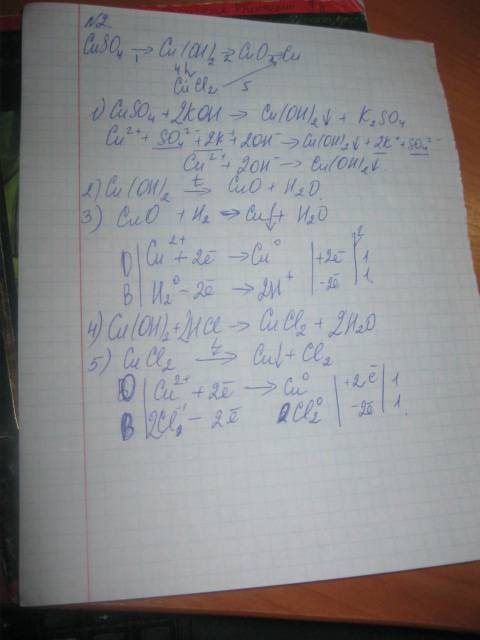 №2
CuSO₄ →₁ Cu(OH)₂ →₂ CuO →₃ Cu
4↓
CuCl₂ 5
1) CuSO₄ + 2KOH → Cu(OH)₂↓ + K₂SO₄
Cu²⁺ + SO₄²⁻ + 2K⁺ + 2OH⁻ → Cu(OH)₂↓ + 2K⁺ + SO₄²⁻
Cu²⁺ + 2OH⁻ → Cu(OH)₂↓
2) Cu(OH)₂ →ᵗ CuO + H₂O
3) CuO + H₂ → Cu↓ + H₂O
O | Cu²⁺ + 2ē → Cu⁰ | +2ē | 1
B | H₂⁰ − 2ē → 2H⁺ | −2ē | 1
4) Cu(OH)₂ + 2HCl → CuCl₂ + 2H₂O
5) CuCl₂ → Cu↓ + Cl₂
O | Cu²⁺ + 2ē → Cu⁰ | +2ē | 1
B | 2Cl⁻¹ − 2ē 2Cl₂⁰ | −2ē | 1.